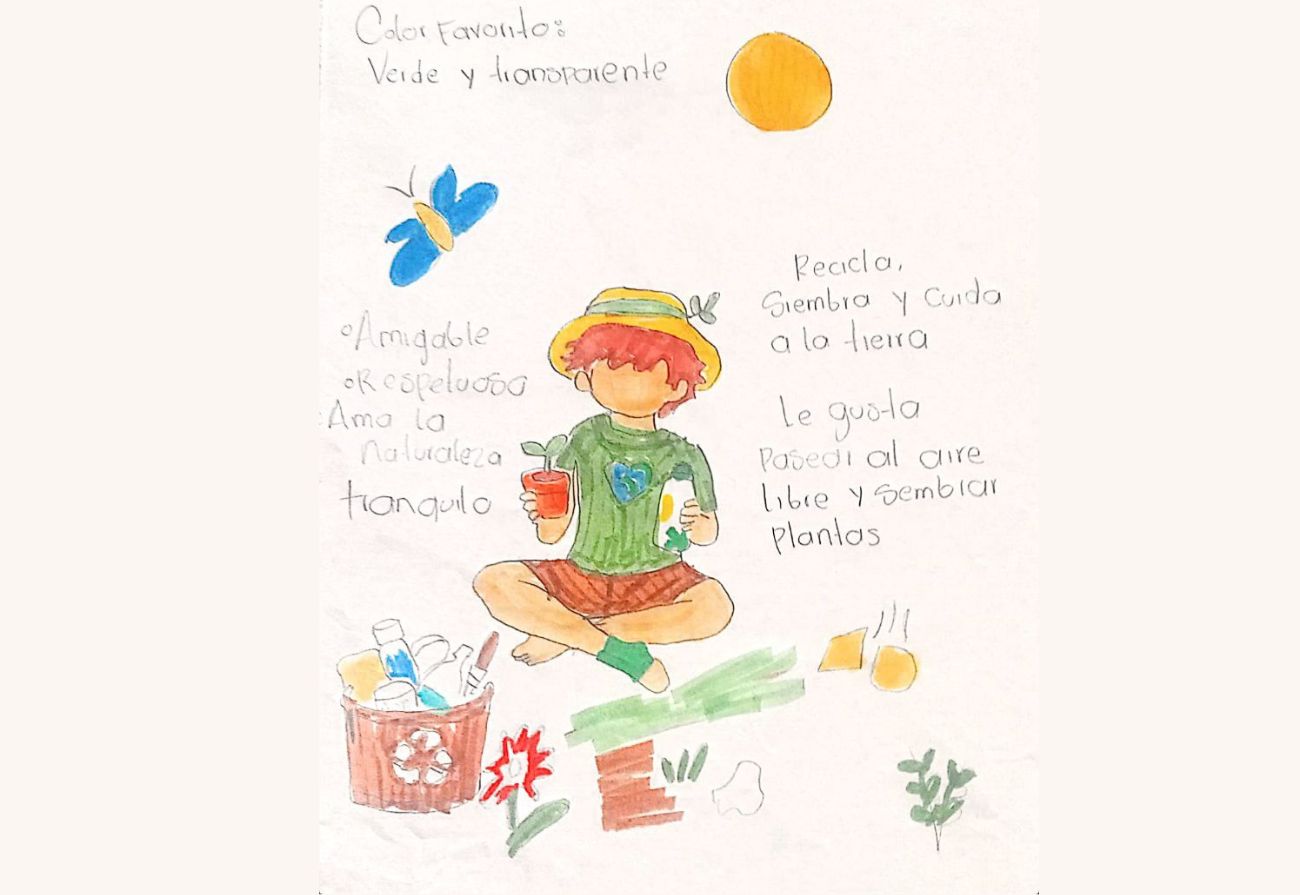 Color Favorito:
Verde y transparente
Recicla,
Siembra y cuida
a la tierra
Amigable
Respetuoso
Ama la
Naturaleza
tranquilo
Le gusta
Pasear al aire
libre y sembrar
Plantas